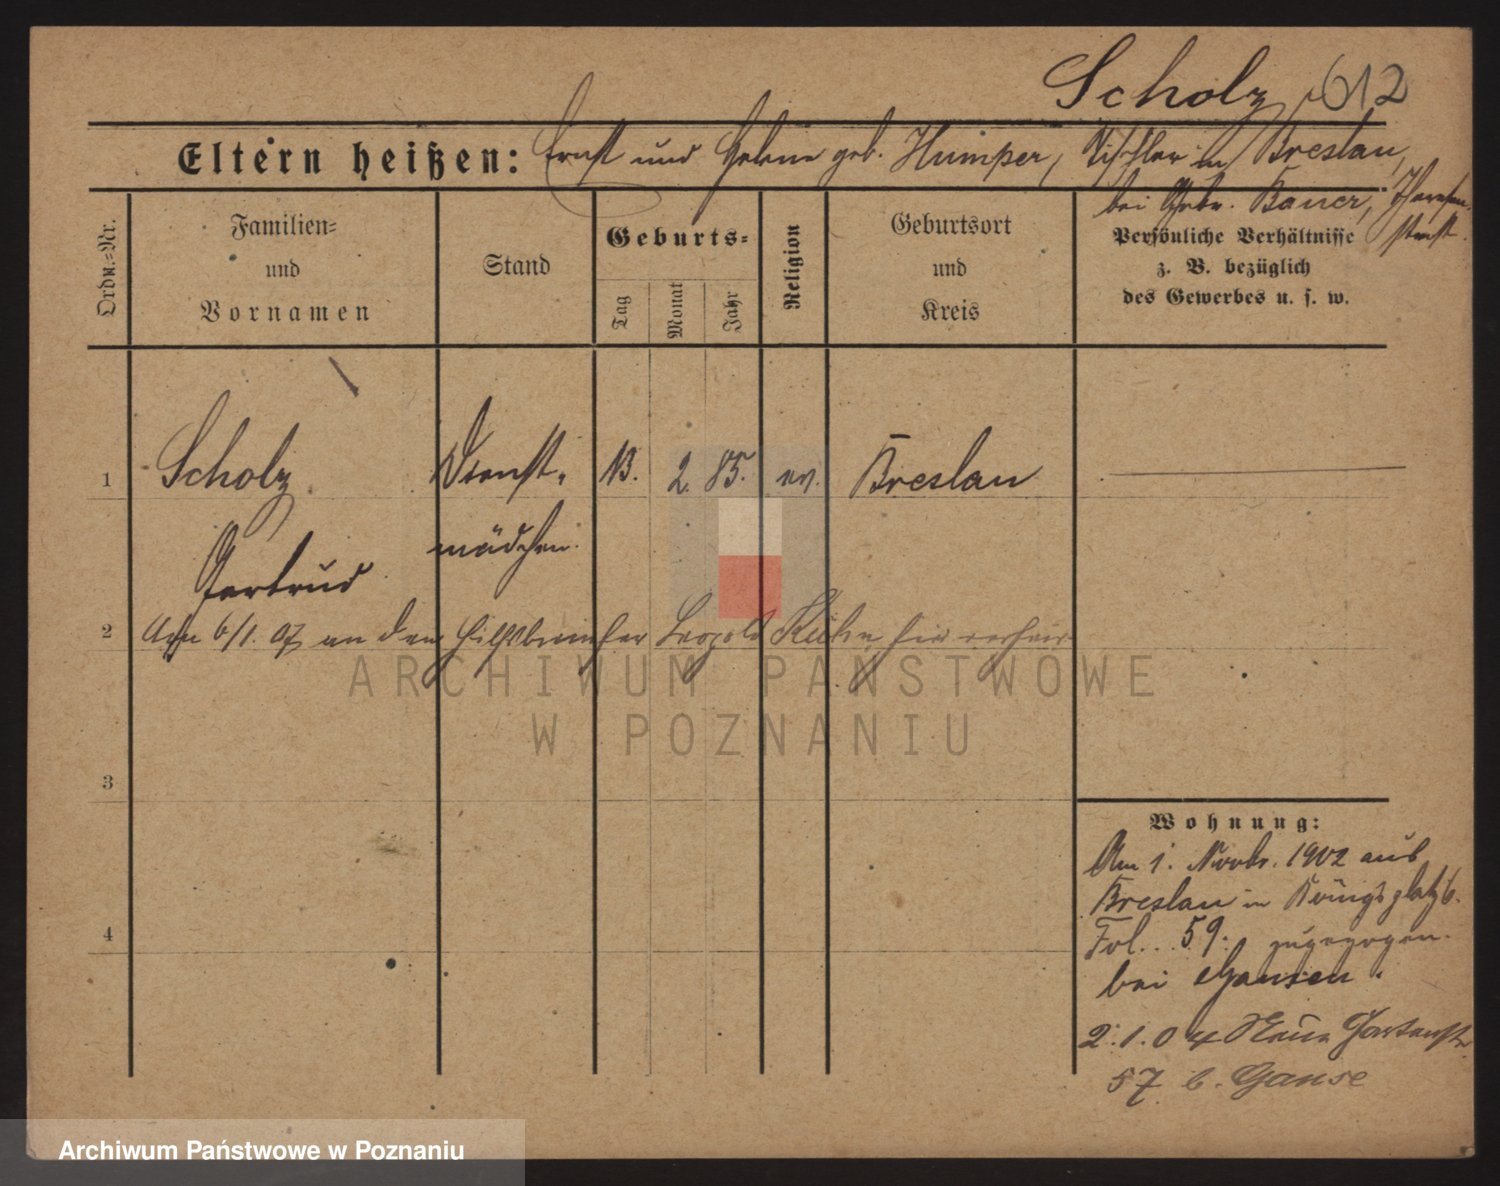 Scholz 612
Eltern heißen: Ernst und Helene geb. Humper, Tischler in Breslau,
bei Gebr. Bauer,
Ordn.-Nr.
Familien-
und
Vornamen
Stand
Geburts-
Tag
Monat
Jahr
Religion
Geburtsort
und
Kreis
Persönliche Verhältnisse
z. B. bezüglich
des Gewerbes u. s. w.
1 Scholz Dienst- 13. 2. 85. ev. Breslau
Gertrud mädchen.
2 6/1. 07 an den Leopold Kühn hier verheir
3
4
Wohnung:
Am 1. Novbr. 1902 aus
Breslau in Königsplatz 6.
Fol. 59. zugezogen.
bei Hansen.
2.1.04 Neue Gartenstr
57 b. Ganse
ARCHIWUM PAŃSTWOWE
W POZNANIU
Archiwum Państwowe w Poznaniu